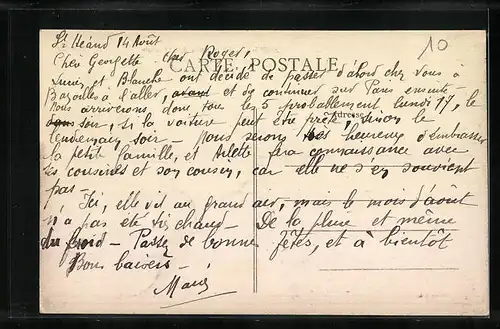 St Héand 14 Août
10
Chers Georgette cher Roger,
CARTE POSTALE
Lucien et Blanche ont décidé de passer d'abord chez vous à
Bazoilles à l'aller, avant et de continuer sur Paris ensuite -
nous arriverons donc tous les 5 probablement lundi 17, le
soir, si la voiture peut être prête, sinon le
Adresse
lendemain soir - Nous serons très heureux d'embrasser
la petite famille, et Arlette fera connaissance avec
ses cousines et son cousin, car elle ne s'en souvient
pas -
Ici, elle vit au grand air, mais le mois d'août
n'a pas été très chaud - De la pluie et même
du froid - Passez de bonnes fêtes, et à bientôt
Bons baisers -
Marie